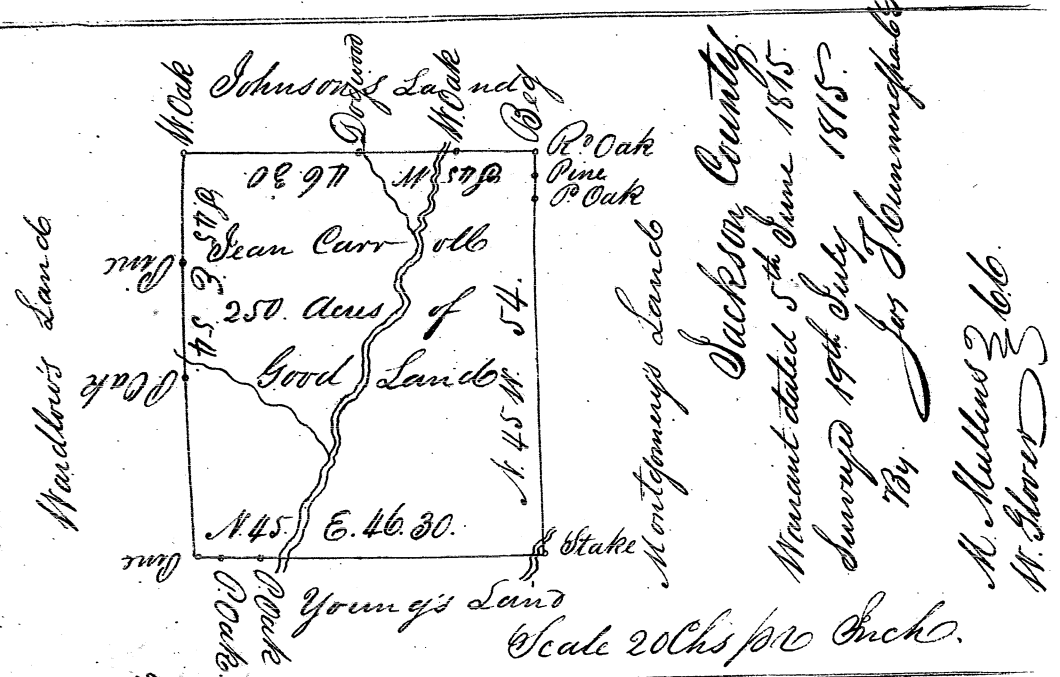 Johnson's Land
W. Oak
Dogwood
W. Oak
Beg
Rd. Oak
Pine
P. Oak
S 45 W 46 30
S. 45 E 54.
Jean Carroll
250. Acres of
Good Land
N. 45 W. 54.
N. 45. E. 46. 30.
Wardlow's Land
Pine
P. Oak
Pine
P. Oak.
P. Oak
Stake
Young's Land
Montgomery's Land
Scale 20 Chs pr Inch.
Jackson County.
Warrant dated 5th June 1815.
Surveyed 19th July 1815.
By Jas T Cunningham
M. Mullens
W. Glover
} CC.